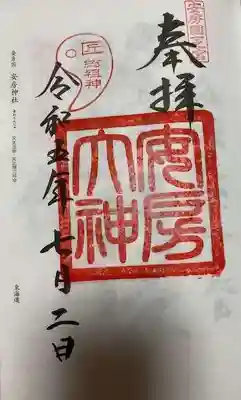 安房國一之宮
奉拝
安房
大神
匠 総祖神
令和五年七月二日
安房神社
東海道